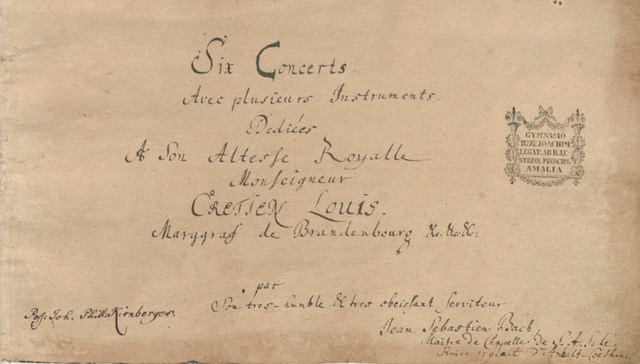 Six Concerts
Avec plusieurs Instruments.
Dediées
A Son Altesse Royalle
Monseigneur
CRETIEN LOUIS.
Marggraf de Brandenbourg &c.&c.&c:
par
Son tres-humble & tres obeissant serviteur
Jean Sebastien Bach,
Maitre de Chapelle de S. A. S. le
Prince regnant d'Anhalt-Coethen.
Poß: Joh. Phill: Kirnberger.
GYMNASIO
REG. IOACHIM.
LEGAT. AB ILLU-
STRISS. PRINCIPE
AMALIA